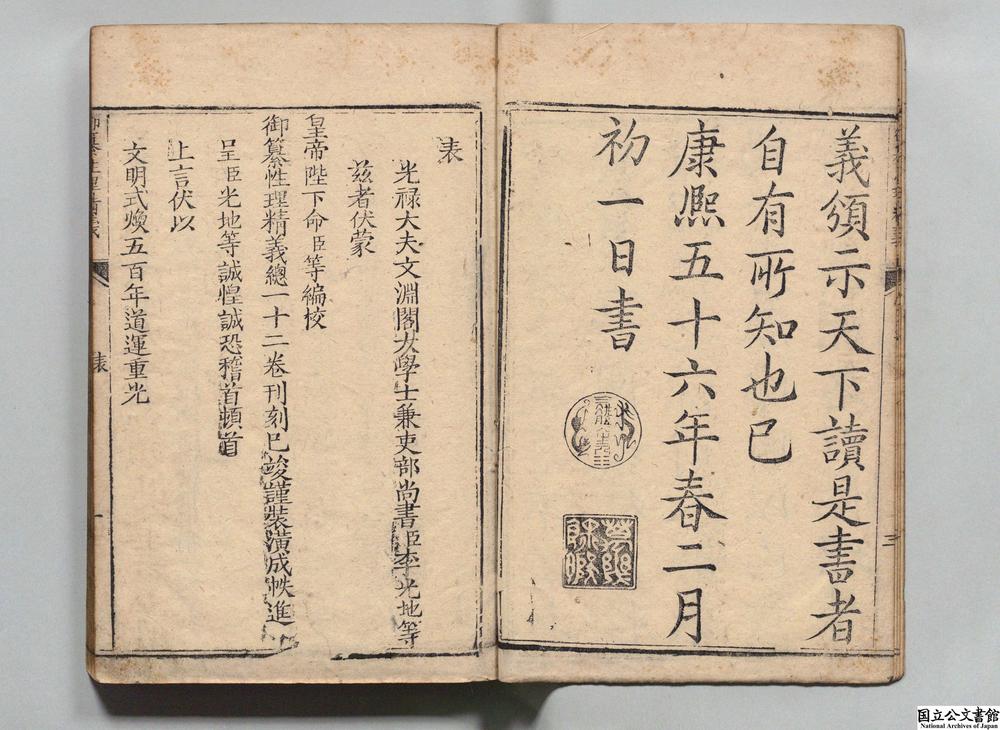 義頒示天下讀是書者
自有所知也已
康熈五十六年春二月
初一日書
表
光禄大夫文淵閣大學士兼吏部尚書臣李光地等
兹者伏蒙
皇帝陛下命臣等編校
御纂性理精義總一十二卷刊刻已竣謹裝潢成帙進
呈臣光地等誠惶誠恐稽首頓首
上言伏以
文明式煥五百年道運重光
表
一
三
国立公文書館
National Archives of Japan